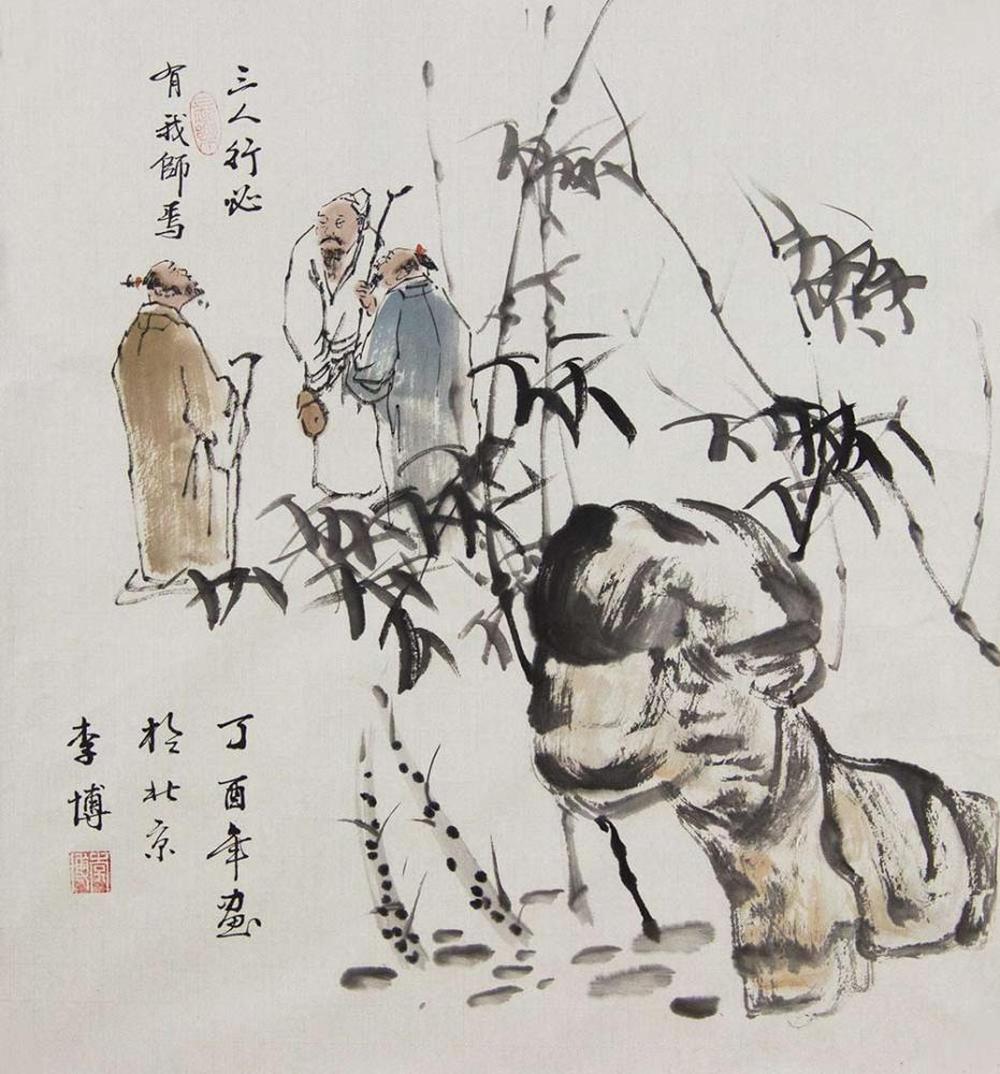 三人行必
有我師焉
丁酉年画
於北京
李博